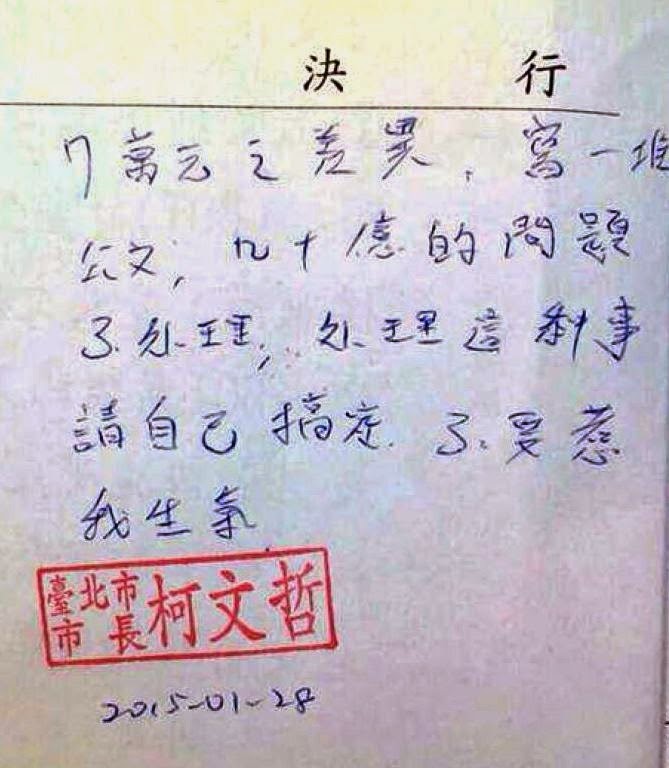 決行
7萬元之差異，寫一堆
公文，几十億的問題
不処理，処理這種事
請自己搞定。不要惹
我生氣。
臺北市市長柯文哲
2015-01-28